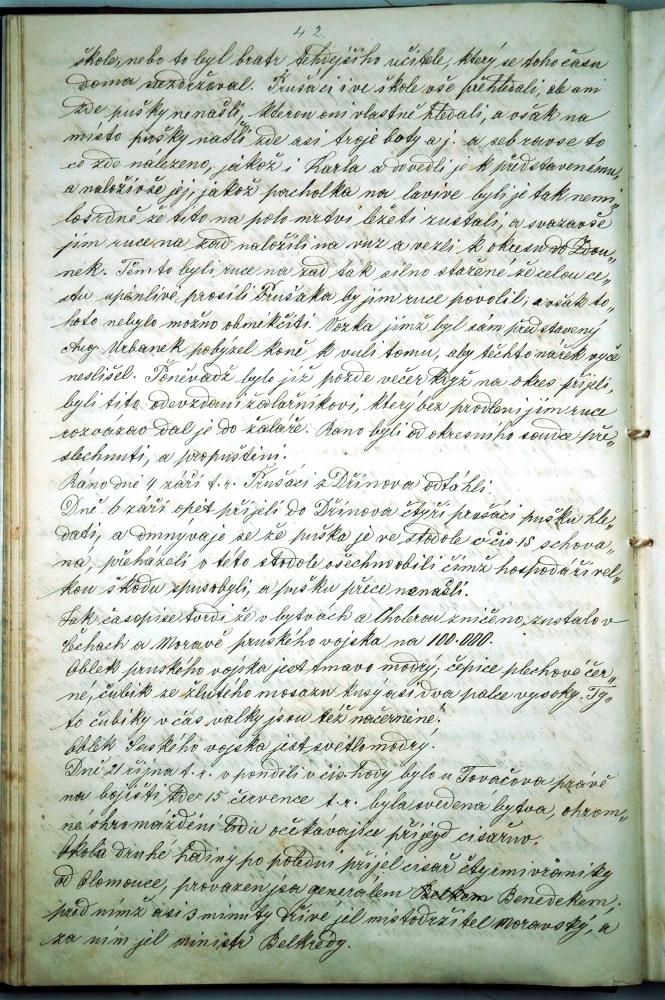 42.
škole, nebo to byl bratr tehdejšího učitele, který se toho času
doma nezdržoval. Prušáci i ve škole vše přehledali, ale ani
zde pušky nenašli, kterou oni vlastně hledali, a však na
místo pušky našli zde asi troje boty a j. a sebravše to
co zde nalezeno, jakož i Karla a dovedli je k představenému,
a naloživše jej jakož pacholka na lavice byli je tak nemi„
losrdně že tito na polo mrtvi ležeti zustali, a svazavše
jim ruce na zad naložili na vuz a vezli k okresu do Zdou„
nek. Těmto byli ruce na zad tak silno stažené že celou ce„
stu upěnlivě prosili Prušáka by jim ruce povolil; a však to„
hoto nebylo možno obmekčiti. Vozka jímž byl sám představený
Urbanek pobyzel koně k vuli tomu, aby těchto nářek více
neslišel. Poněvadž bylo již pozdě večer když na okres přijeli,
byli tito odevzdani žalařníkovi, který bez prodlení jim ruce
rozvazav dal je do žalaře. Rano byli od okresního soudce vý„
slechnuti, a propuštěni.
Rano dne 4 září t. r. Prušáci z Dřínova odtáhli.
Dně 6 září opět přijeli do Dřínova čtyři prušáci pušku hle„
dati, a domnívaje se že puška je ve stodole v čís 15 schova„
ná, přeházeli v této stodole všechno obilí čímž hospodáři vel„
kou škodu spusobyli, a pušku přice nenašli.
Jak časopise tvrdí že v bytvách a Cholerou zničeno, zustalo v
Čchach a Moravě pruského vojska na 100.000.
Oblek pruského vojska jest tmavo modrý; čepice plechové čer„
né, čubik ze žlutého mosazu kusý asi dva palce vysoky. Ty„
to čubiky v čas valky jsou též načerněné.
Oblek Saského vojska jest světlomodrý.
Dně 21 října t. r. v pondělí v cís. hody bylo u Tovačova právě
na bojišti kde 15 července t. r. byla svedena bytva, ohrom„
né shromaždění lidu očekávajíce příjezd cisařuv.
Okolo druhé hodiny po polední přijel cisař čtyrmi vraníky
od Olomouce, provazen jsa generalem Benedekem;
před nímž asi 3 minuty dříve jel místodržitel moravský, a
za ním jel ministr Belkredy.